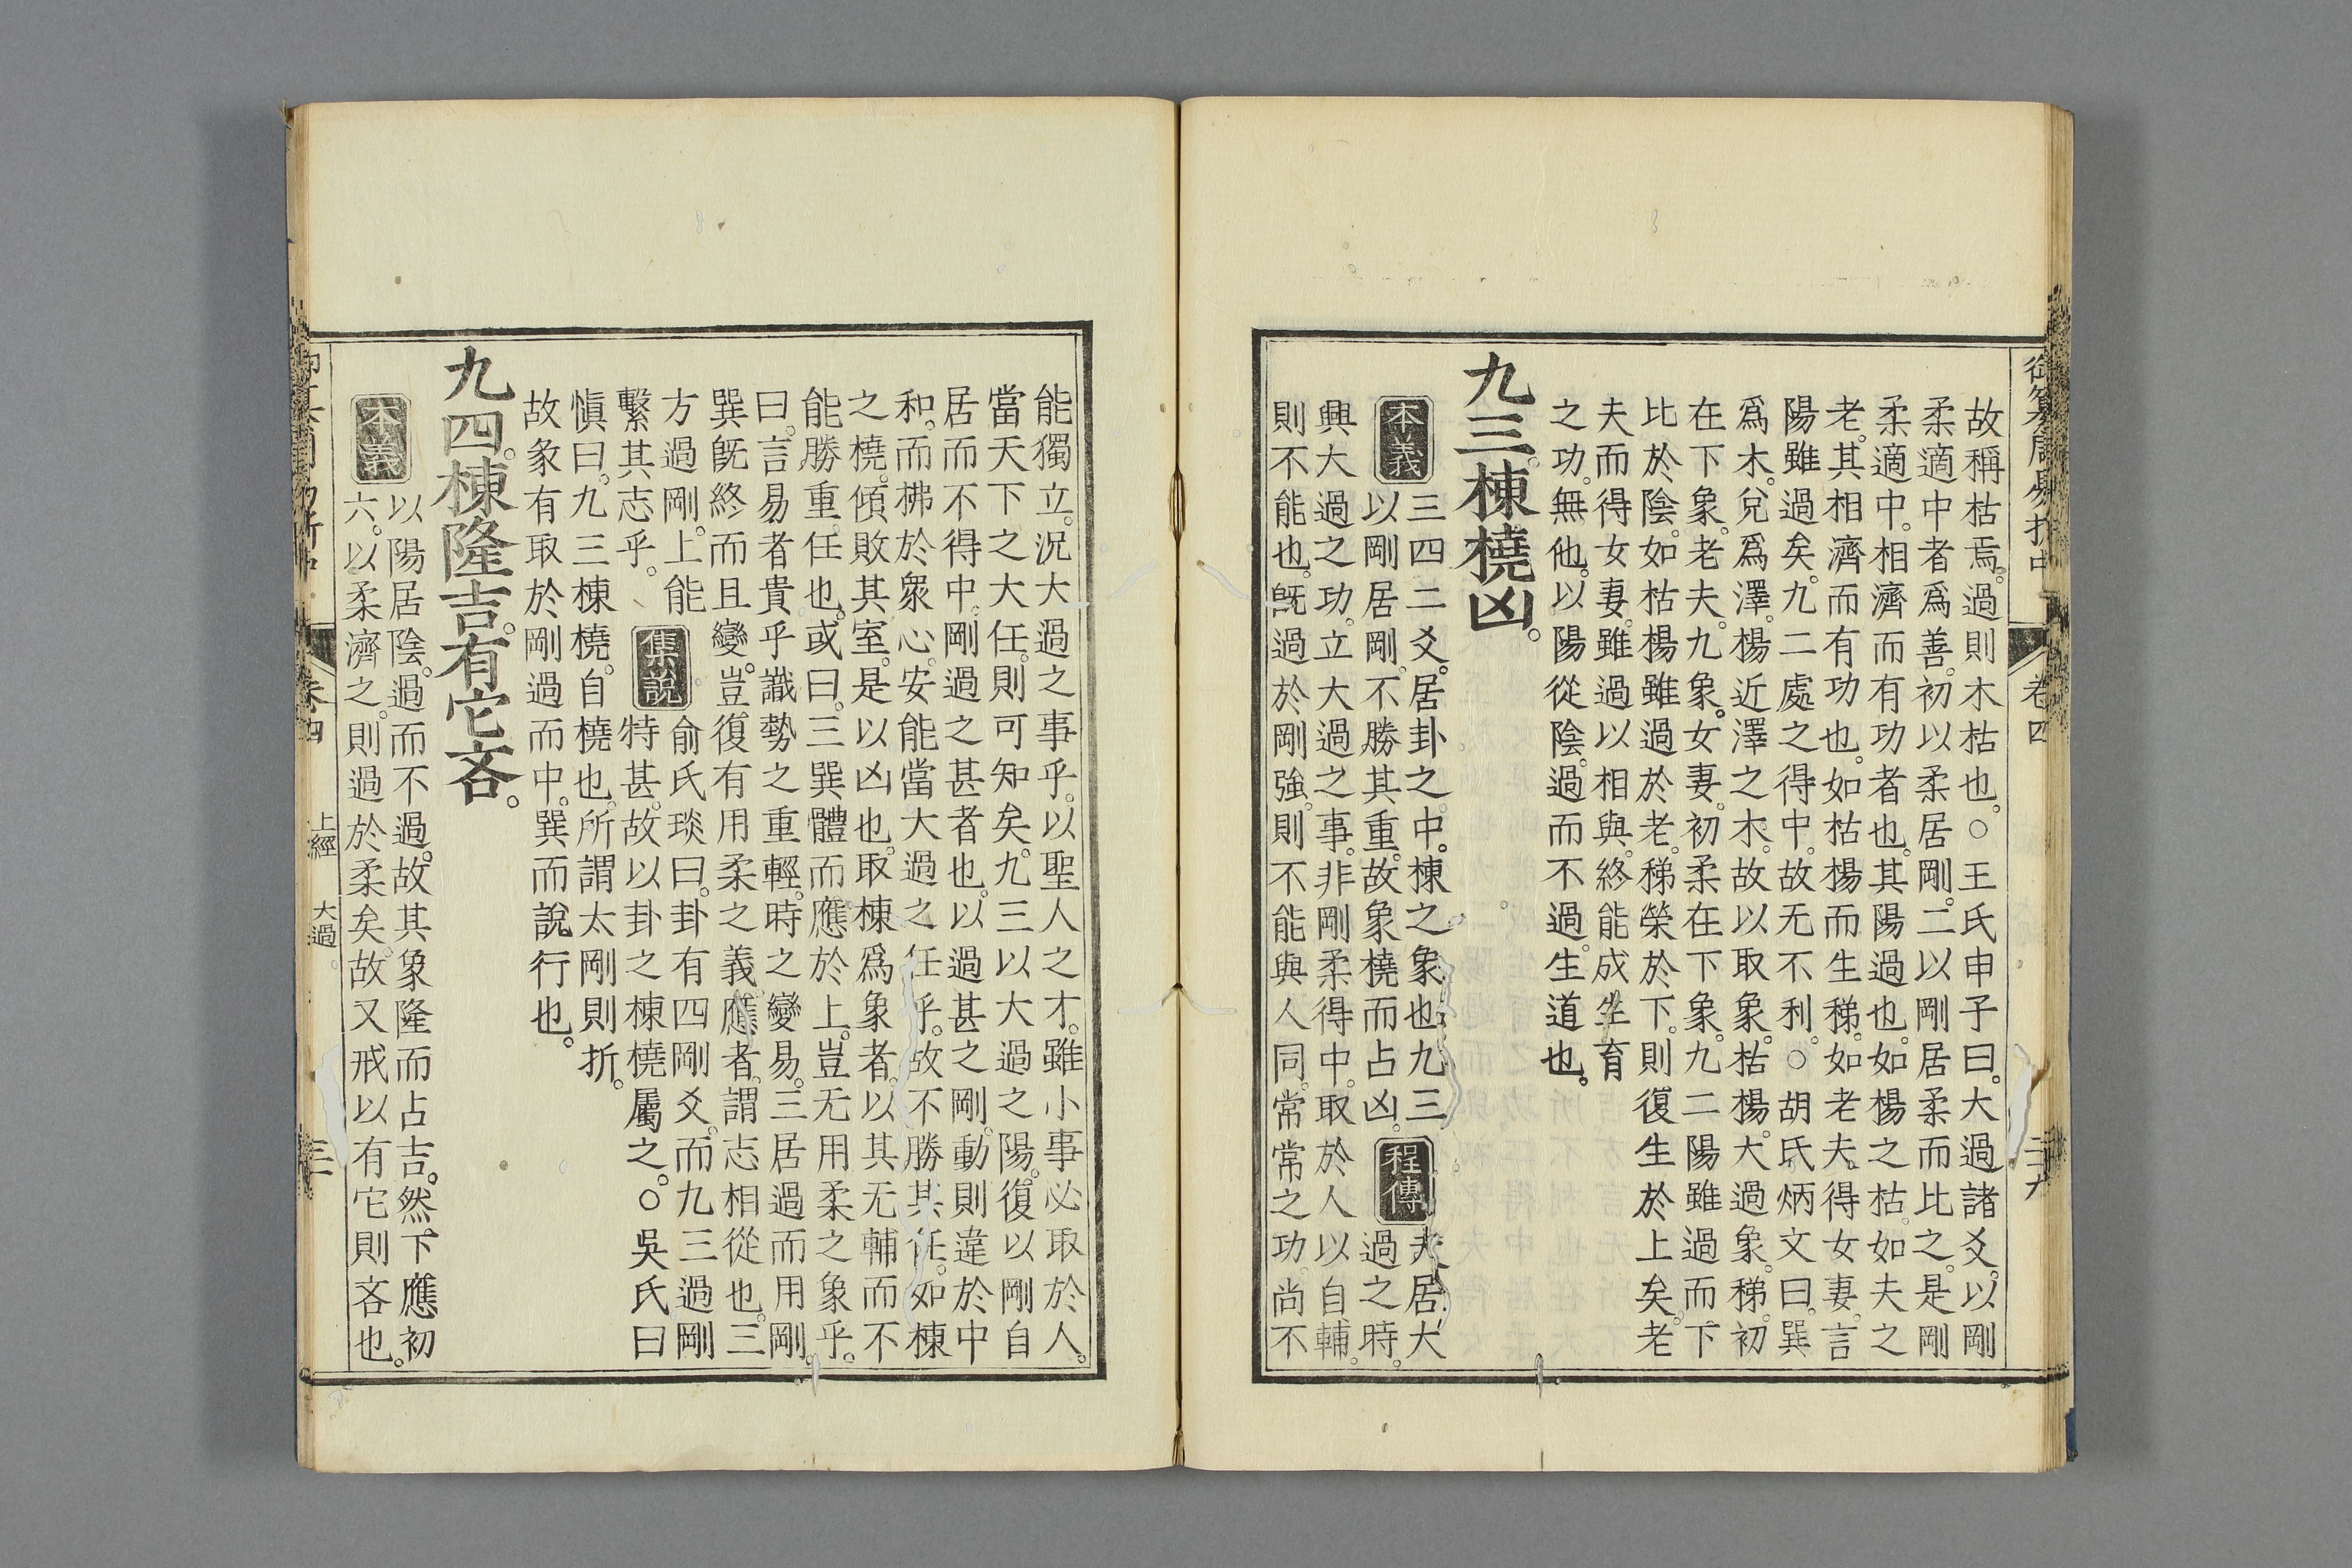 御纂周易折中
卷四
故稱枯焉。過則木枯也。○王氏申子曰。大過諸爻。以剛
柔適中者爲善。初以柔居剛。二以剛居柔而比之。是剛
柔適中。相濟而有功者也。其陽過也。如楊之枯。如夫之
老。其相濟而有功也。如枯楊而生稊。如老夫得女妻。言
陽雖過矣。九二處之得中。故无不利。○胡氏炳文曰。巽
爲木。兌爲澤。楊近澤之木。故以取象。枯楊。大過象。稊。初
在下象。老夫。九象。女妻。初柔在下象。九二陽雖過而下
比於陰。如枯楊雖過於老。稊榮於下。則復生於上矣。老
夫而得女妻。雖過以相與。終能成生育
之功。無他。以陽從陰。過而不過。生道也。
九三。棟橈凶。
本義
三四二爻。居卦之中。棟之象也。九三
以剛居剛。不勝其重。故象橈而占凶。
程傳
夫居大
過之時。
興大過之功。立大過之事。非剛柔得中。取於人以自輔。
則不能也。旣過於剛強。則不能與人同。常常之功。尚不
能獨立。況大過之事乎。以聖人之才。雖小事必取於人。
當天下之大任。則可知矣。九三以大過之陽。復以剛自
居而不得中。剛過之甚者也。以過甚之剛。動則違於中
和。而拂於衆心。安能當大過之任乎。故不勝其任。如棟
之橈。傾敗其室。是以凶也。取棟爲象者。以其无輔而不
能勝重任也。或曰。三巽體而應於上。豈无用柔之象乎。
曰。言易者貴乎識勢之重輕。時之變易。三居過而用剛。
巽旣終而且變。豈復有用柔之義。應者。謂志相從也。三
方過剛。上能
繫其志乎。
集說
俞氏琰曰。卦有四剛爻。而九三過剛
特甚。故以卦之棟橈屬之。○吳氏曰
愼曰。九三棟橈。自橈也。所謂太剛則折。
故象有取於剛過而中。巽而說行也。
九四。棟隆吉。有它吝。
本義
以陽居陰。過而不過。故其象隆而占吉。然下應初
六。以柔濟之。則過於柔矣。故又戒以有它則吝也。
上經
大過